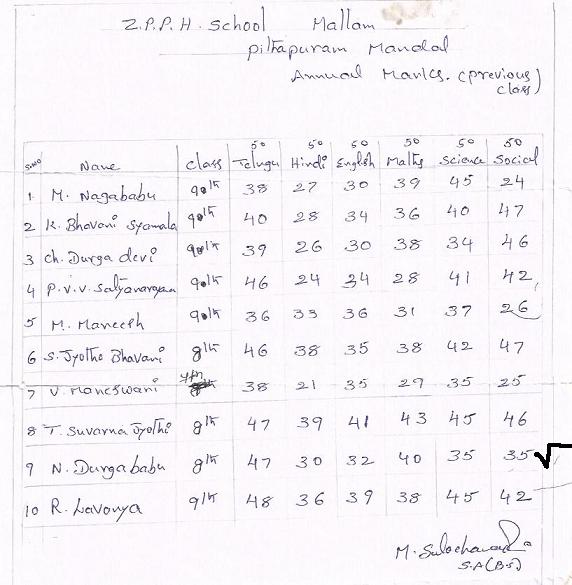 Z.P.P.H. School Mallam
Pittapuram Mandal
Annual Marks. (previous class)
50 50 50 50 50 50
S.no Name class Telugu Hindi English Maths Science Social
1 M. Nagababu 9th 38 27 30 39 45 24
2 K. Bhavani Syamala 9th 40 28 34 36 40 47
3 Ch. Durga devi 9th 39 26 30 38 34 46
4 P.V.V. Satyanarayana 9th 46 24 34 28 41 42
5 M. Maneesh 9th 36 33 36 31 37 26
6 S. Jyothi Bhavani 8th 46 38 35 38 42 47
7 V. Maheswari 38 21 35 29 35 25
8 T. Suvarna Jyothi 8th 47 39 41 43 45 46
9 N. Durgababu 8th 47 30 32 40 35 35
10 R. Lavanya 9th 48 36 39 38 45 42
M. Sulochana
S.A (B.S)